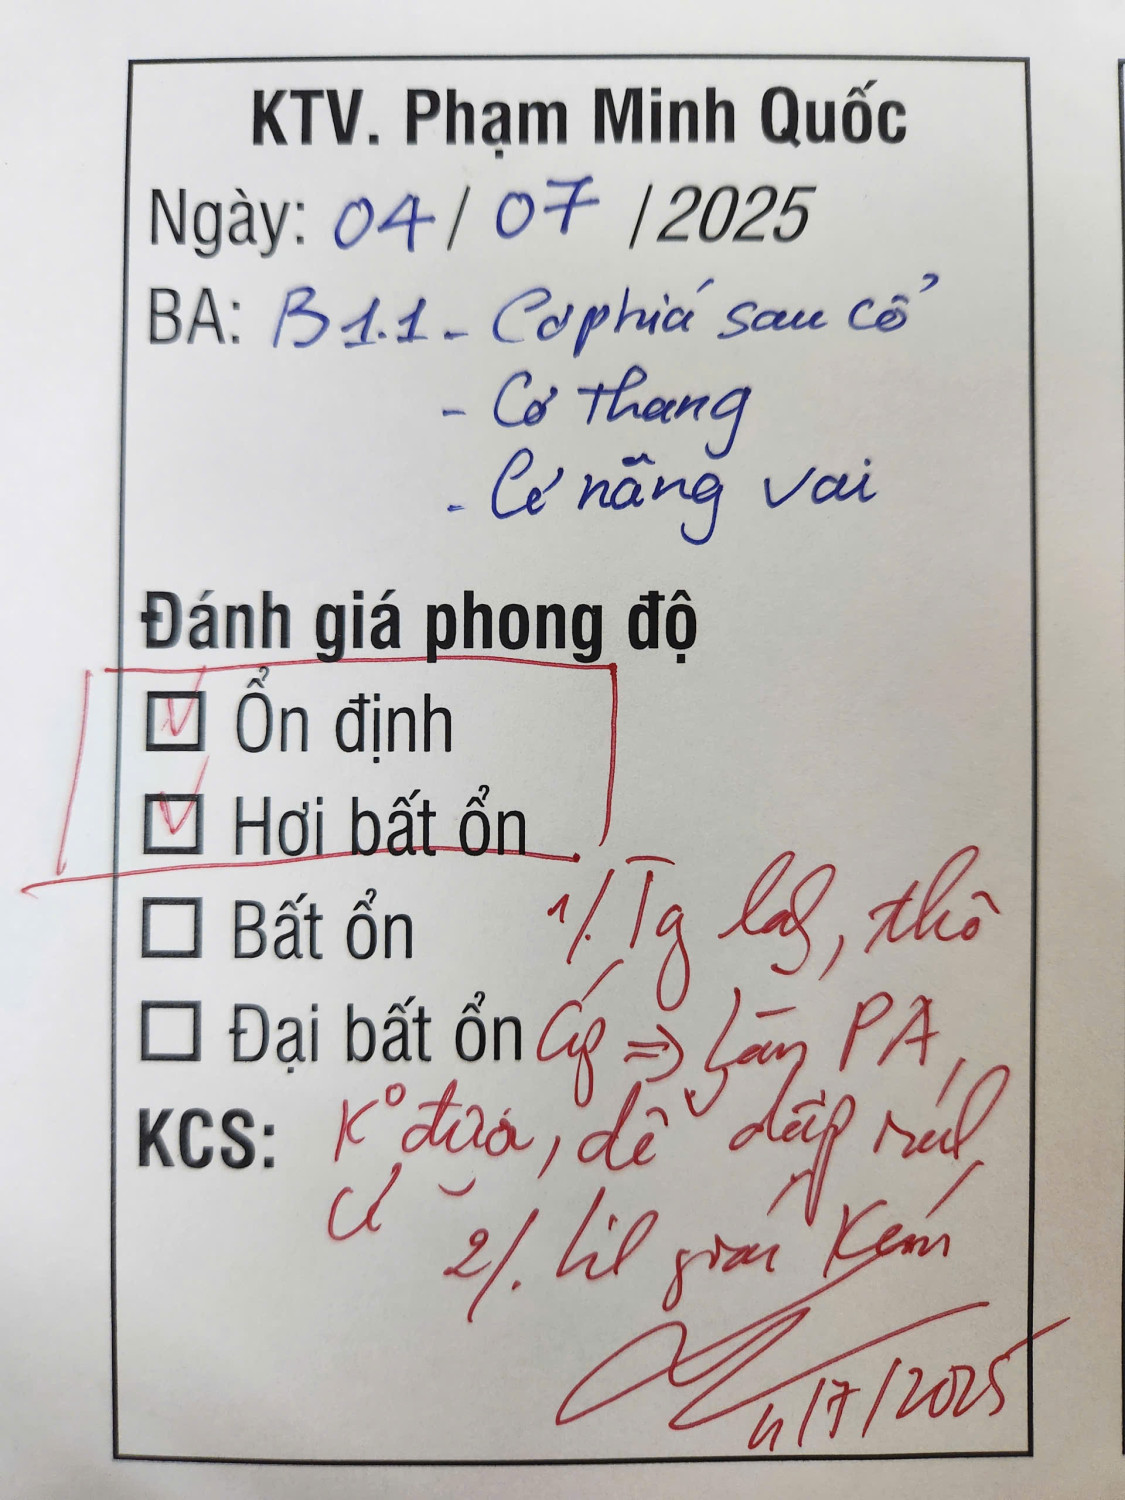 KTV. Phạm Minh Quốc
Ngày: 04 / 07 / 2025
BA: B1.1 - Cơ phía sau cổ
- Cơ thang
- Cơ nâng vai
Đánh giá phong độ
Ổn định
Hơi bất ổn
Bất ổn
1/. Tg, thô
Đại bất ổn => PA,
KCS: K° đưa, dễ dập
2/. kém
4/7/2025